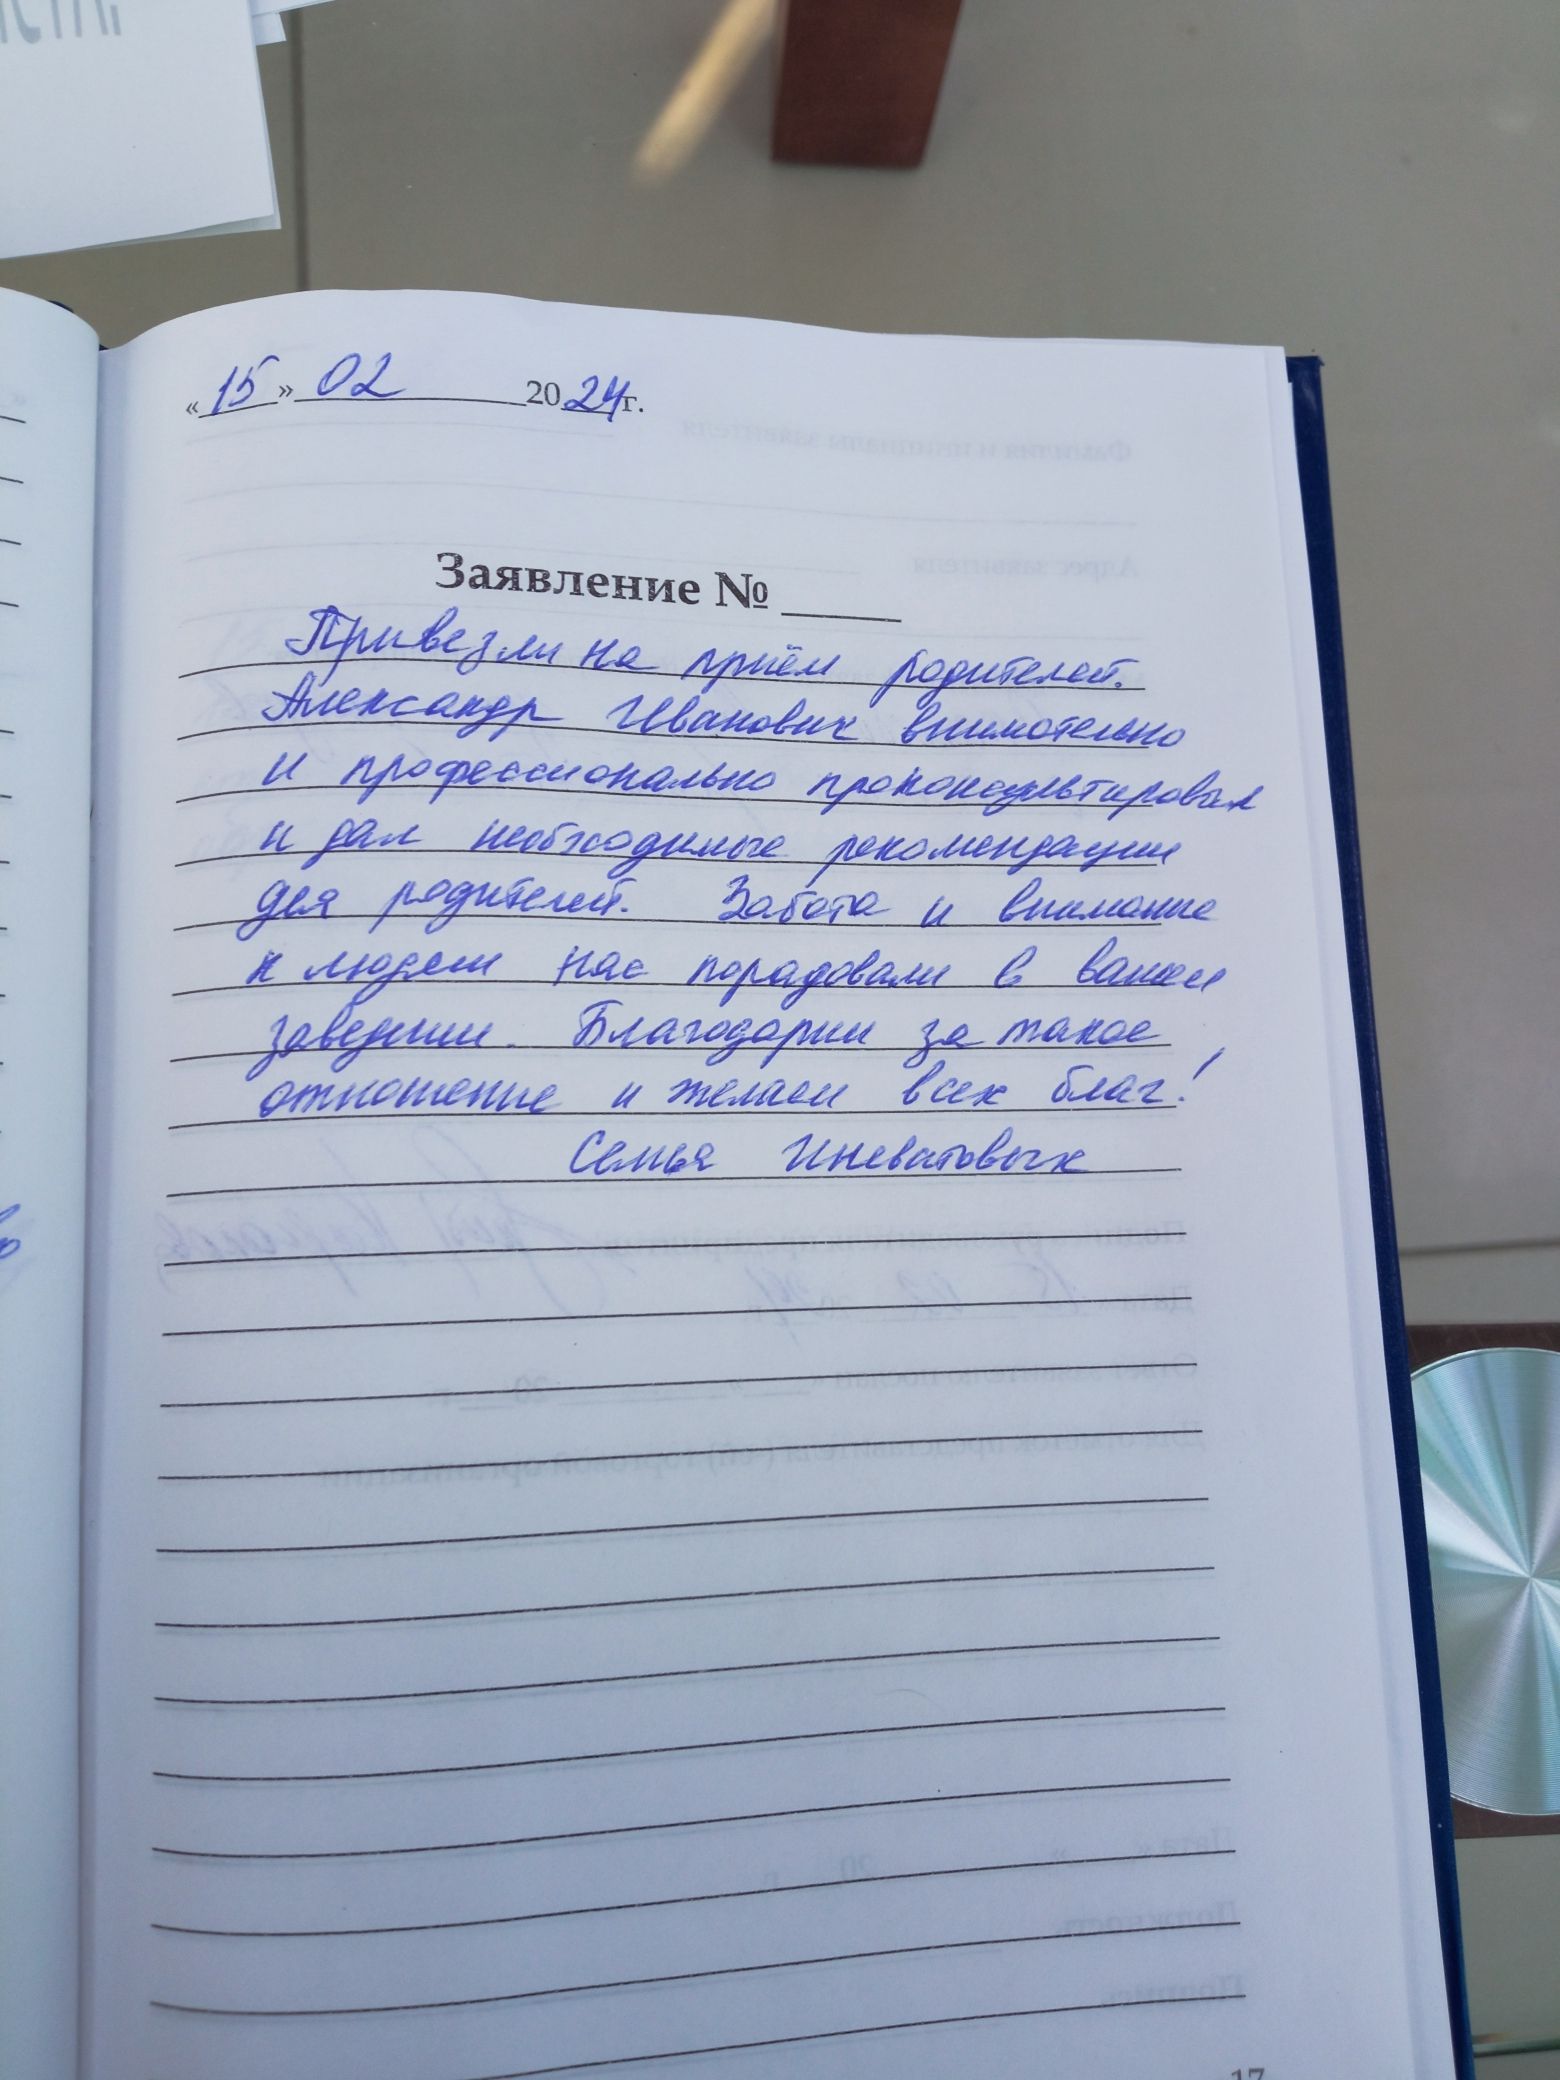 «15» 02 2024г.
Заявление № ____
Привезли на приём родителей.
Александр Иванович внимательно
и профессионально проконсультировал
и дал необходимые рекомендации
для родителей. Забота и внимание
к людям нас порадовали в вашем
заведении. Благодарим за такое
отношение и желаем всех благ!
Семья Иневатовых
17